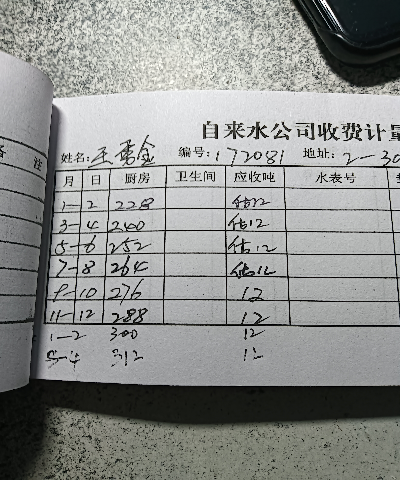 自来水公司收费计量
备 注
姓名: 王 金 编号: 172081 地址: 2-30
月 日 厨房 卫生间 应收吨 水表号
1-2 228 估12
3-4 240 估12
5-6 252 估12
7-8 264 估12
9-10 276 12
11-12 288 12
1-2 300 12
3-4 312 12